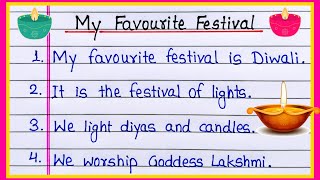 My Favourite Festival
1. My favourite festival is Diwali.
2. It is the festival of lights.
3. We light diyas and candles.
4. We worship Goddess Lakshmi.